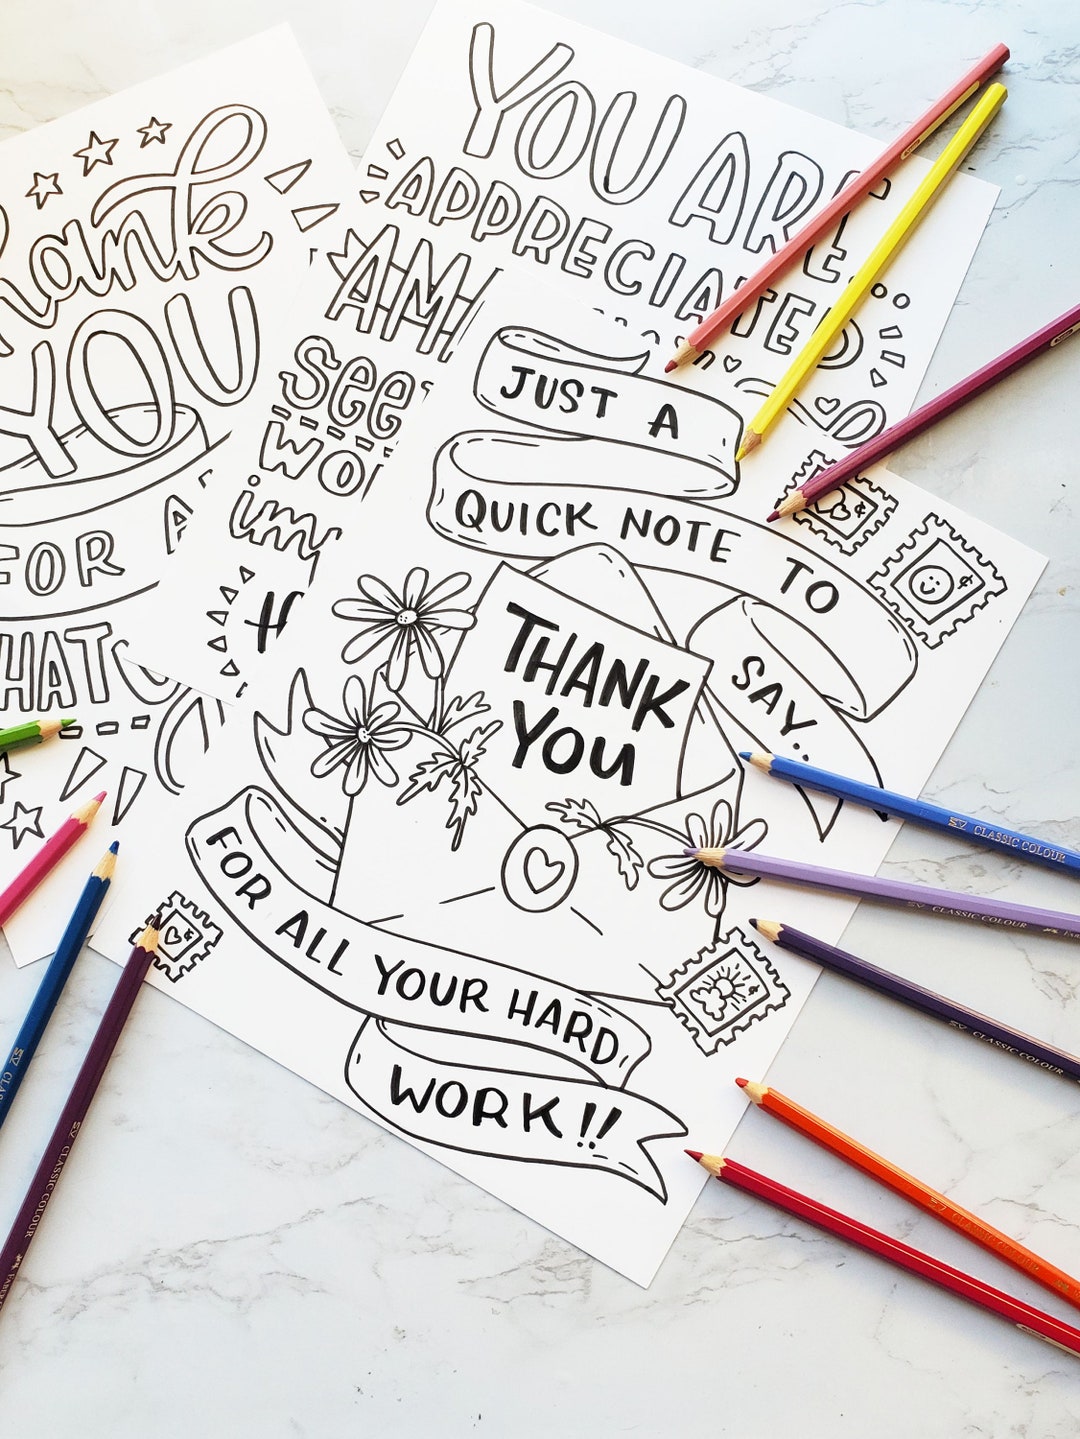 Thank
YOU
FOR A
HAT
YOU ARE...
APPRECIATED
see
JUST A
QUICK NOTE TO
SAY...
THANK
YOU
FOR ALL YOUR HARD
WORK!!
CLASSIC COLOUR
CLASSIC COLOUR
CLASSIC COLOUR
CLASSIC COLOUR
CLASSIC COLOUR